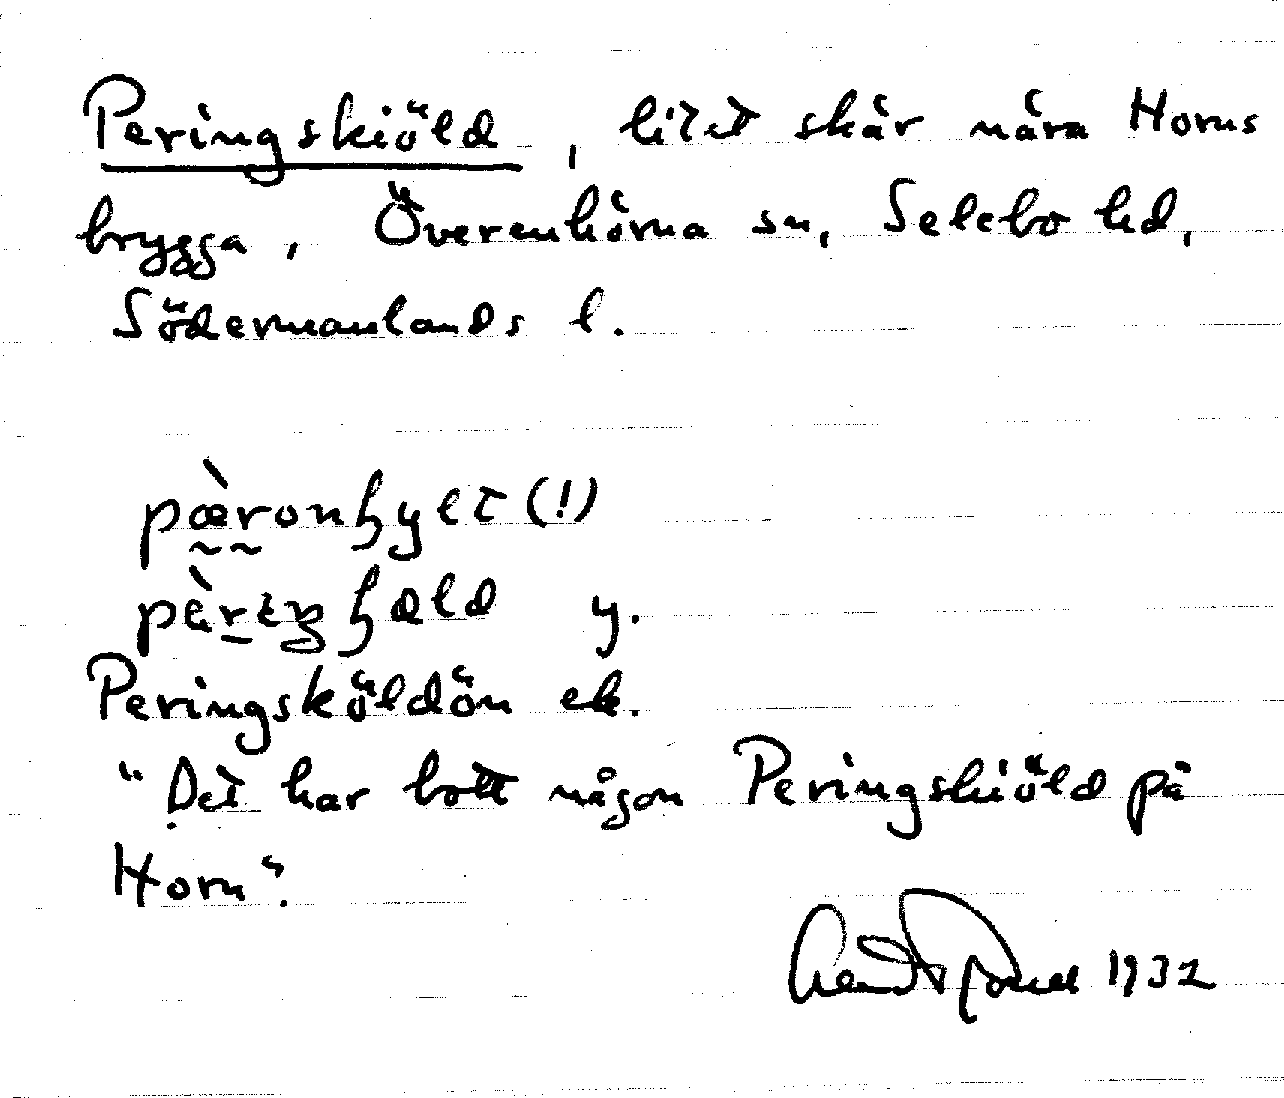 Peringskiöld, litet skär nära Horns
brygga, Överenhörna sn, Selebo hd,
Södermanlands l.
pæ̀ronhylt (!)
Peringsköldön ek.
"Det har bott någon Peringskiöld på
Horn".
1932